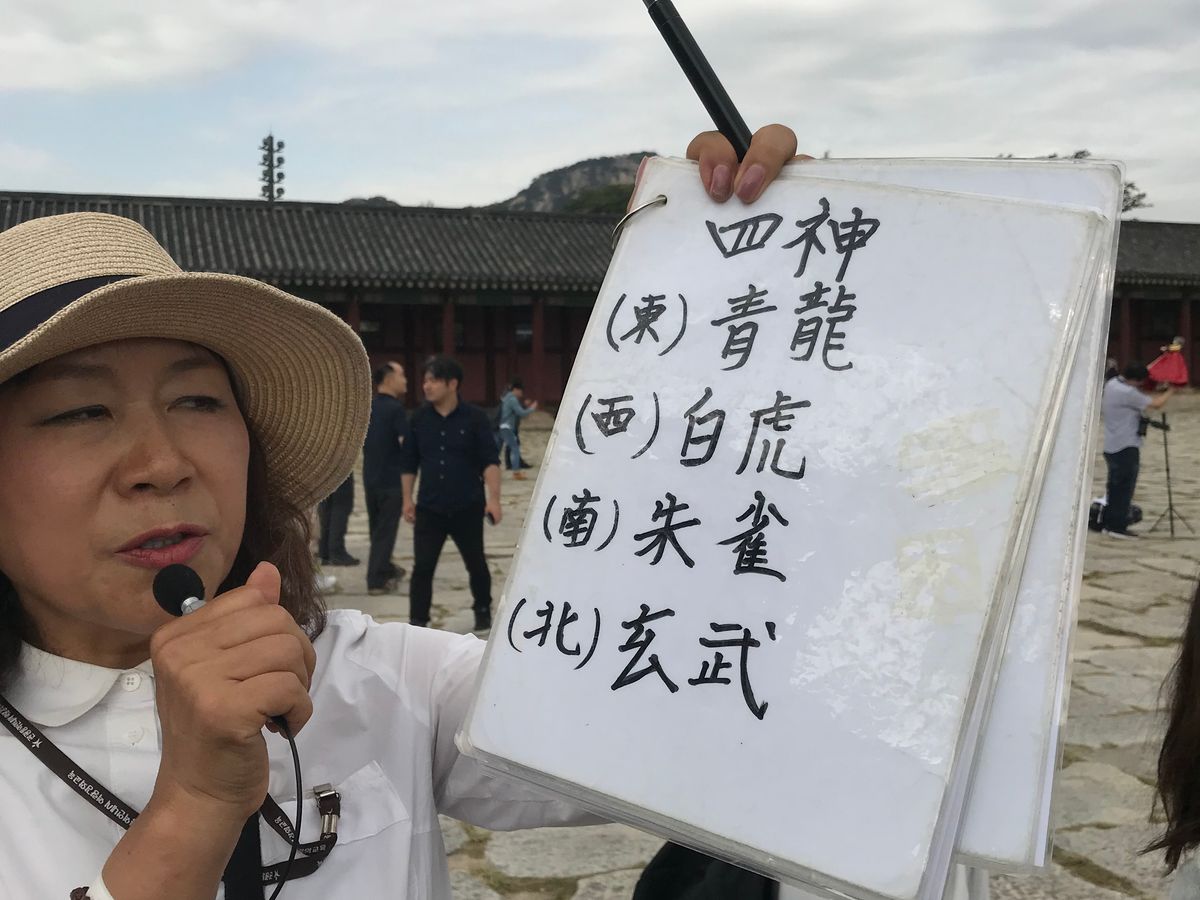 四神
(東) 青龍
(西) 白虎
(南) 朱雀
(北) 玄武